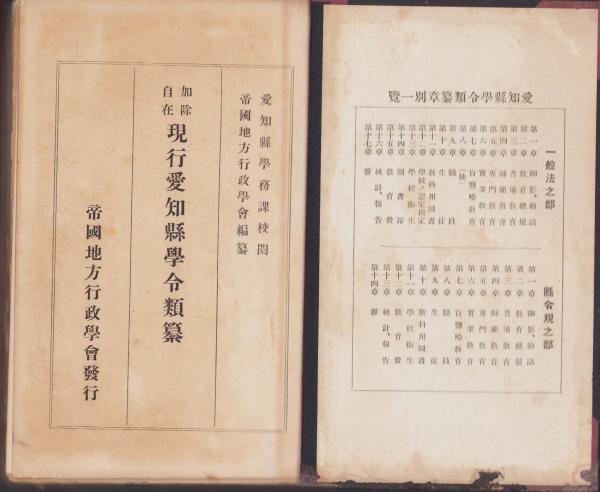 愛知縣學令類纂章別一覽
一般法之部
第一章 御影、勅語
第二章 教育總規
第三章 普通教育
第四章 師範教育
第五章 專門教育
第六章 實業教育
第七章 盲聾啞教育
第八章 
第九章 職員
第十章 生徒
第十一章 教科用圖書
第十二章 學校ノ認定指定
第十三章 學校衞生
第十四章 圖書館
第十五章 教育費
第十六章 統計、報告
第十七章 雜
縣令規之部
第一章 御影、勅語
第二章 教育總規
第三章 普通教育
第四章 師範教育
第五章 專門教育
第六章 實業教育
第七章 盲聾啞教育
第八章 職員
第九章 生徒
第十章 教科用圖書
第十一章 學校衞生
第十二章 教育費
第十三章 統計、報告
第十四章 雜
愛知縣學務課校閱
帝國地方行政學會編纂
加除自在 現行愛知縣學令類纂
帝國地方行政學會發行